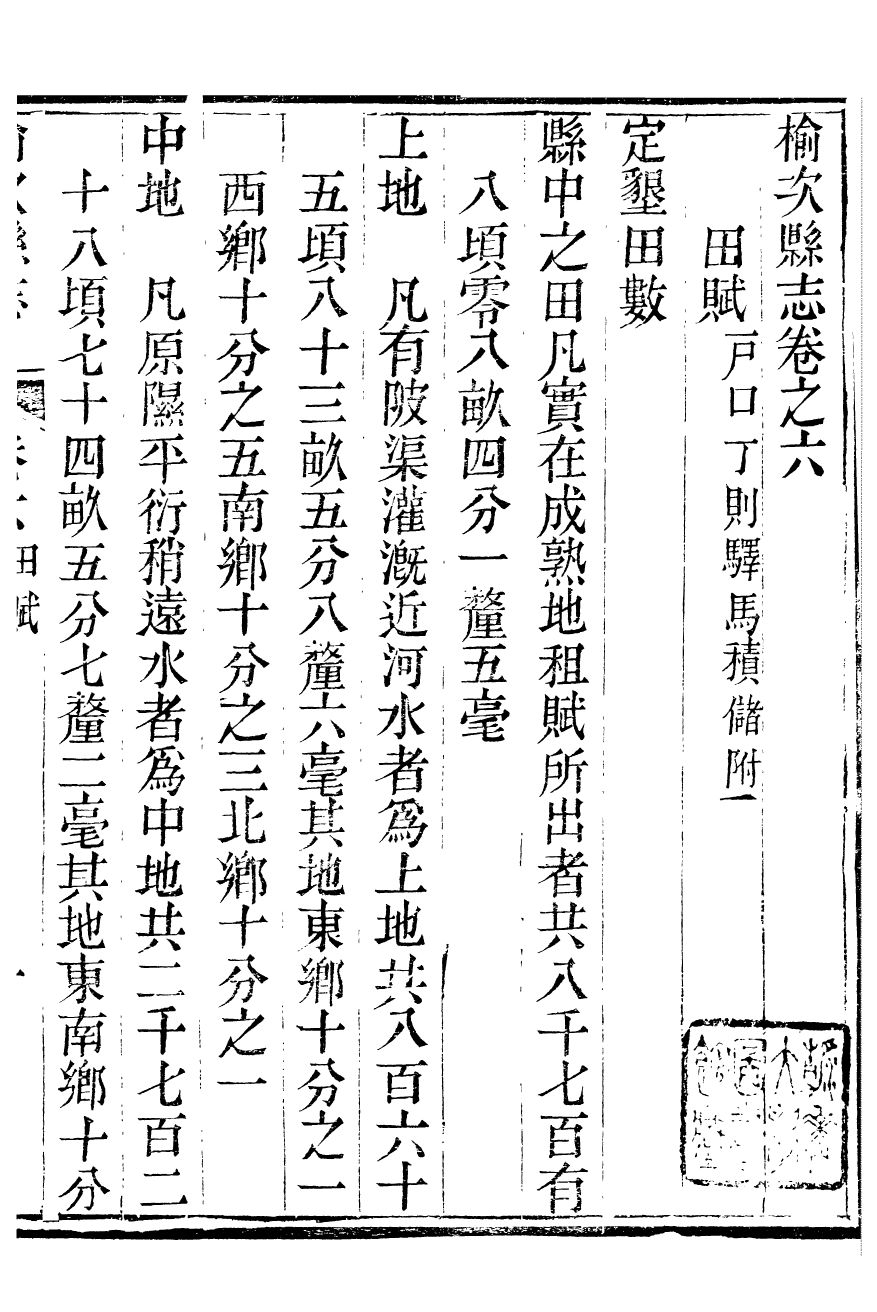 榆次縣志卷之六
田賦 戸口丁則驛馬積儲附
定墾田數
縣中之田凡實在成熟地租賦所出者共八千七百有
八頃零八畝四分一釐五毫
上地 凡有陂渠灌漑近河水者爲上地共八百六十
五頃八十三畝五分八釐六毫其地東鄉十分之一
西鄉十分之五南鄉十分之三北鄉十分之一
中地 凡原隰平衍稍遠水者爲中地共二千七百二
十八頃七十四畝五分七釐二毫其地東南鄉十分
田賦